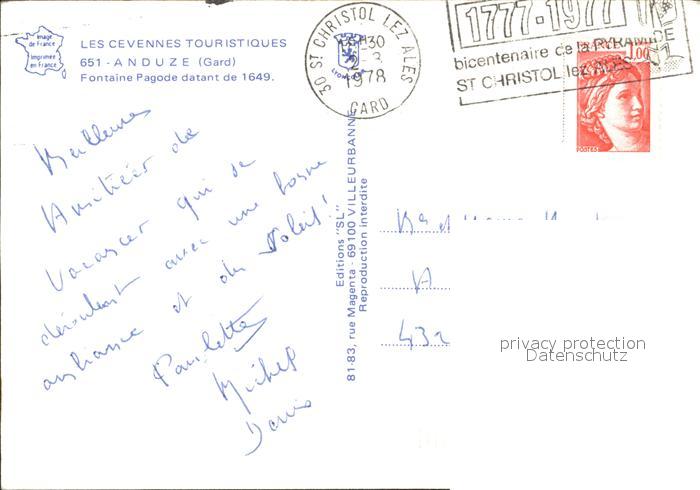 Image
de France
Imprimée
en France
LES CEVENNES TOURISTIQUES
651 - ANDUZE (Gard)
Fontaine Pagode datant de 1649.
30 ST CHRISTOL LEZ ALES
1978
GARD
1777-1977
bicentenaire de la PYRAMIDE
ST CHRISTOL lez ALES
1,00
POSTES
Meilleures
Amitiées de
Vacances qui se
déroulent avec une bonne
ambiance et du Soleil!
Paulette
Michel
Denis
Editions "SL"
81-83, rue Magenta - 69100 VILLEURBANNE
Reproduction interdite
privacy protection
Datenschutz